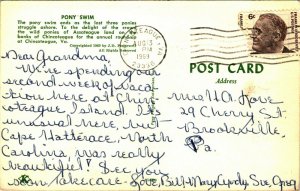 PONY SWIM
The pony swim ends as the last three ponies
struggle ashore. To the delight of the crowd
the wild ponies of Assateague land on the
banks of Chincoteague for the annual roundup
at Chincoteague, Va.
All Rights Reserved
AUG 3
PM
1969
6¢
POST CARD
Address
Dear Grandma,
We're spending our
second week of vaca-
tion here at Chin-
coteague Island. It's
unusual here, but
Cape Hatterace, North
Carolina, was really
beautiful! See you
soon. Take care - Love, Bill, Mary, Judy, Sue, Greg
Mrs. H.A. Love
29 Cherry St.
Brookville
Pa.